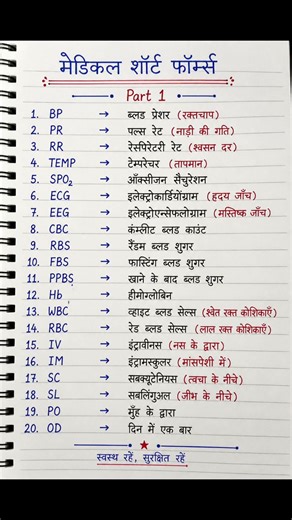 मेडिकल शॉर्ट फॉर्म्स
Part 1
1. BP → ब्लड प्रेशर (रक्तचाप)
2. PR → पल्स रेट (नाड़ी की गति)
3. RR → रेस्पिरेटरी रेट (श्वसन दर)
4. TEMP → टेम्परेचर (तापमान)
5. SPO₂ → ऑक्सीजन सैचुरेशन
6. ECG → इलेक्ट्रोकार्डियोग्राम (हृदय जाँच)
7. EEG → इलेक्ट्रोएन्सेफलोग्राम (मस्तिष्क जाँच)
8. CBC → कंम्लीट ब्लड काउंट
9. RBS → रैंडम ब्लड शुगर
10. FBS → फास्टिंग ब्लड शुगर
11. PPBS → खाने के बाद ब्लड शुगर
12. Hb → हीमोग्लोबिन
13. WBC → व्हाइट ब्लड सेल्स (श्वेत रक्त कोशिकाएँ)
14. RBC → रेड ब्लड सेल्स (लाल रक्त कोशिकाएँ)
15. IV → इंट्रावीनस (नस के द्वारा)
16. IM → इंट्रामस्कुलर (मांसपेशी में)
17. SC → सबक्यूटेनियस (त्वचा के नीचे)
18. SL → सबलिंगुअल (जीभ के नीचे)
19. PO → मुँह के द्वारा
20. OD → दिन में एक बार
स्वस्थ रहें, सुरक्षित रहें